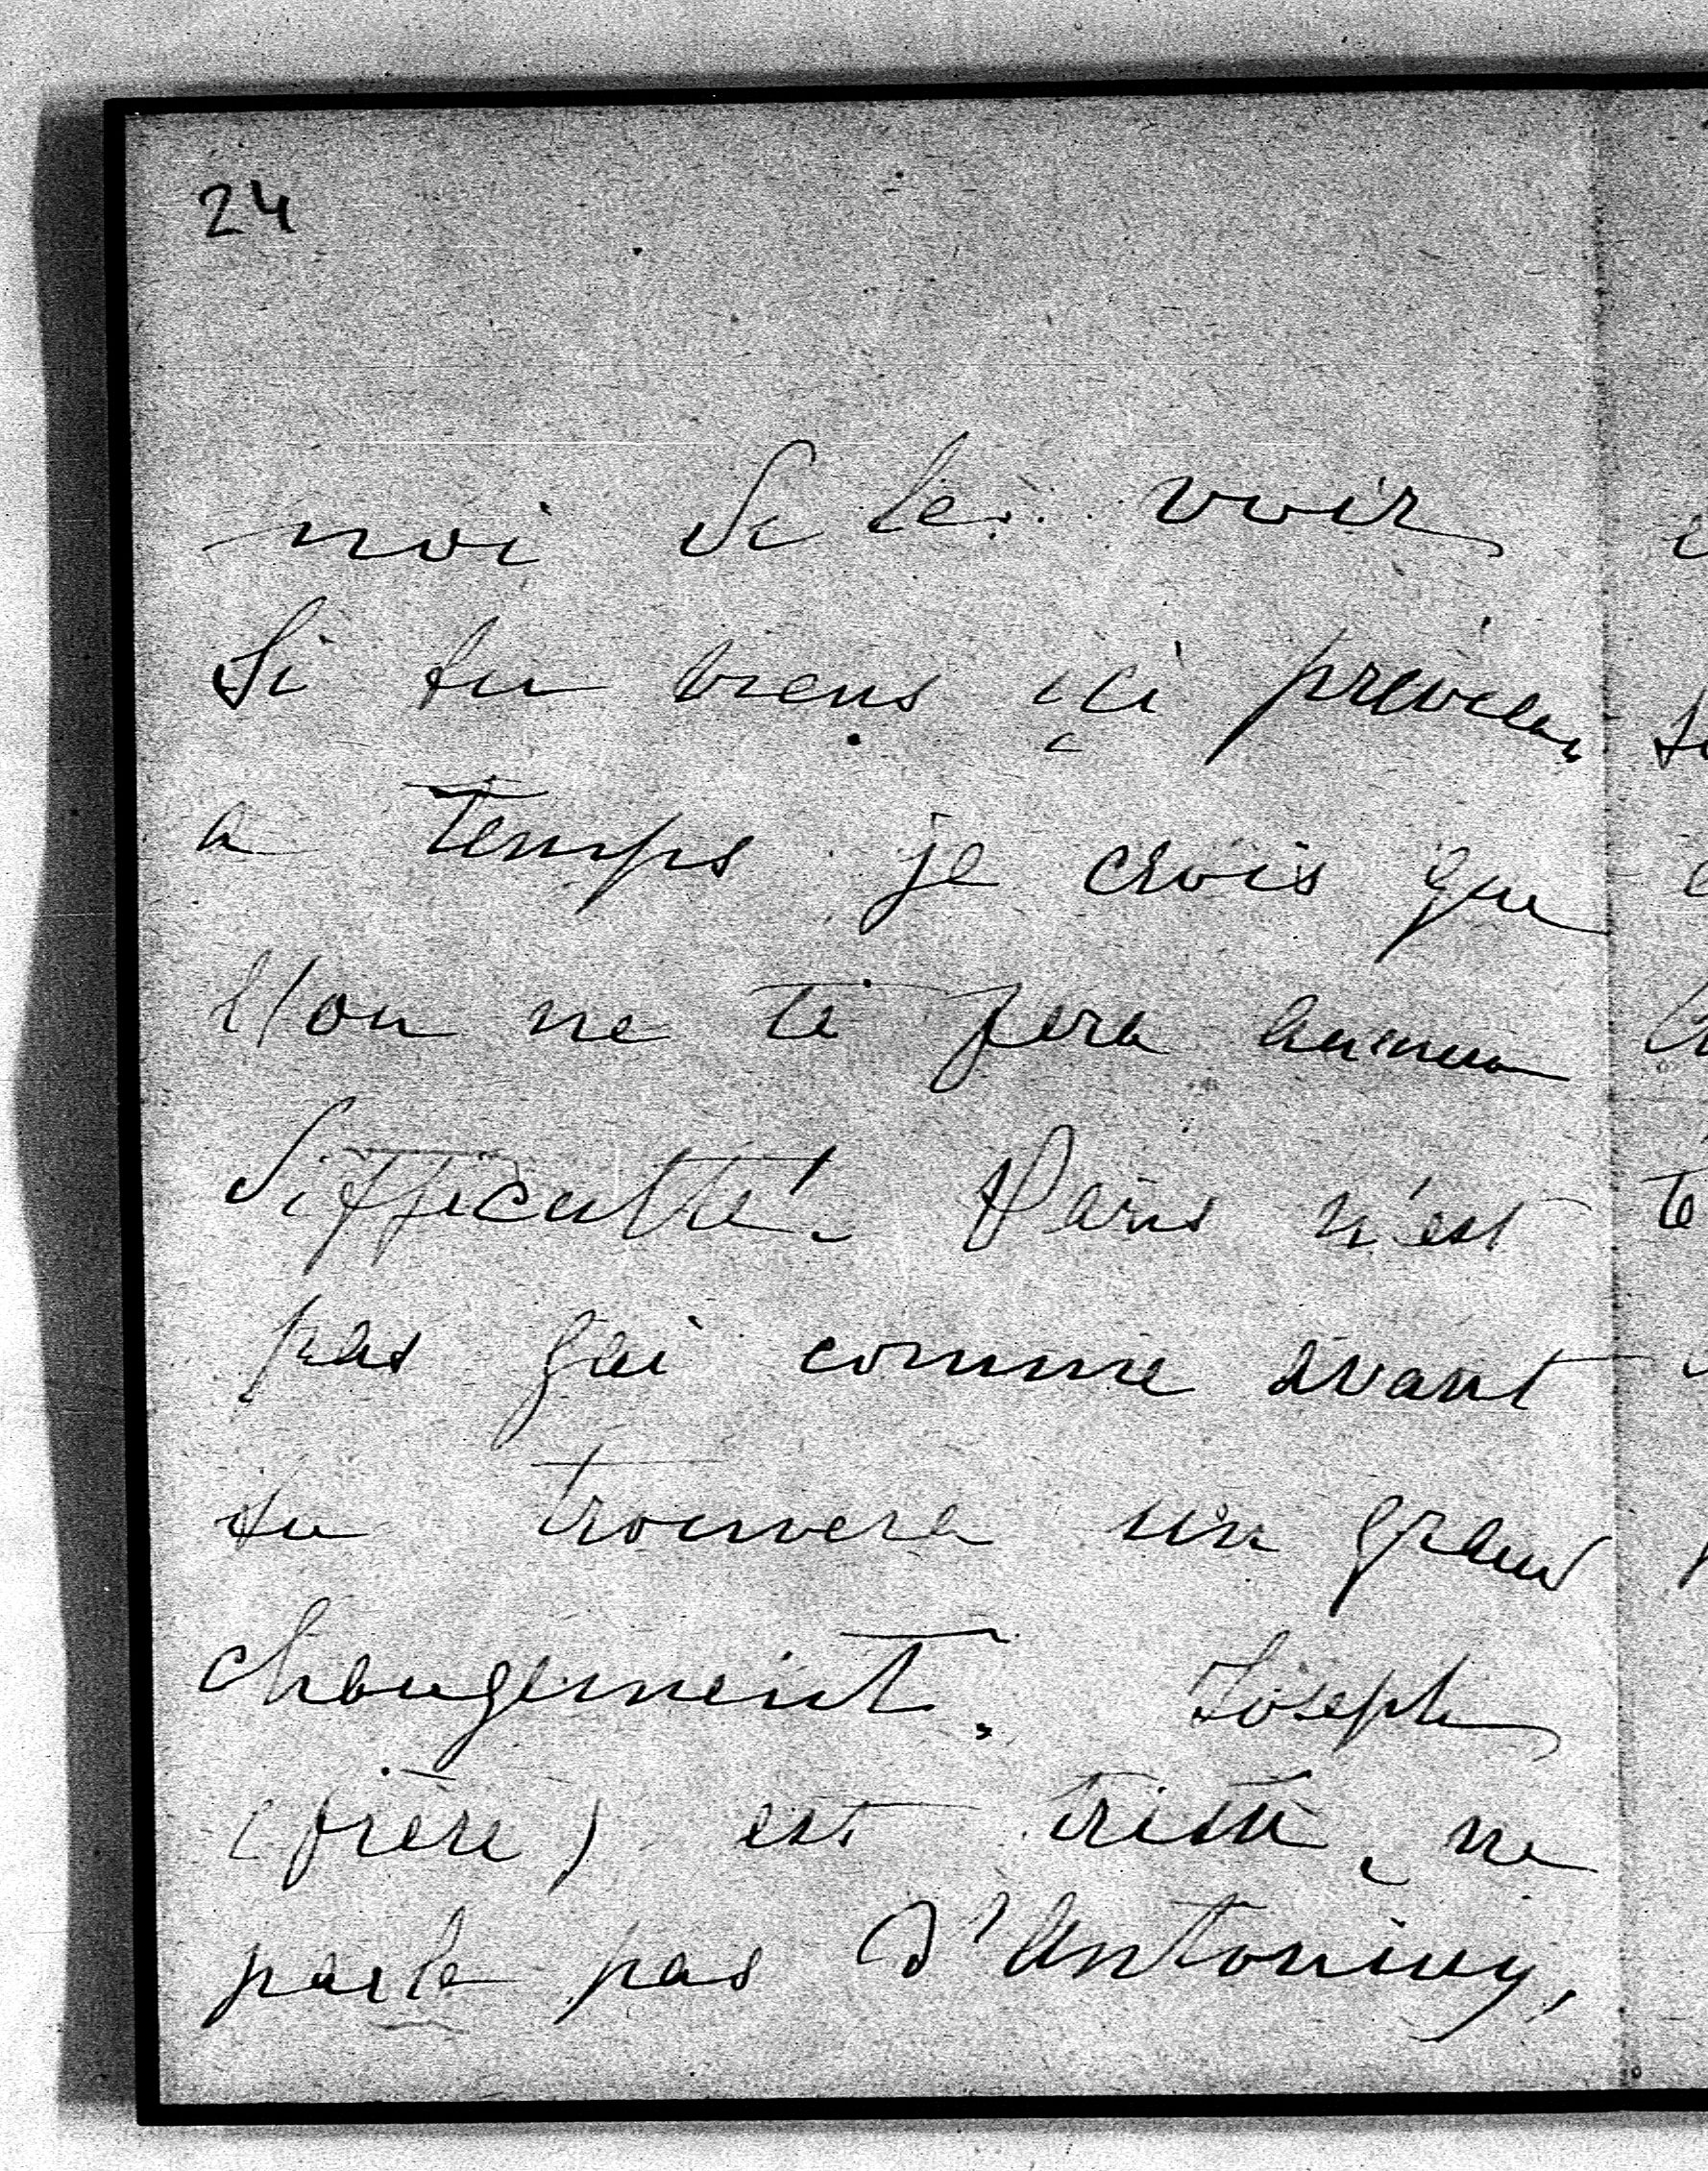 24
moi de les voir
Si tu viens ici préviens
a temps je crois que
l'on ne te fera aucune
difficulté. Paris n'est
pas gai comme avant
tu trouvera un grand
changement. Joseph
(frère) est triste, ne
parle pas d'Antoniny,